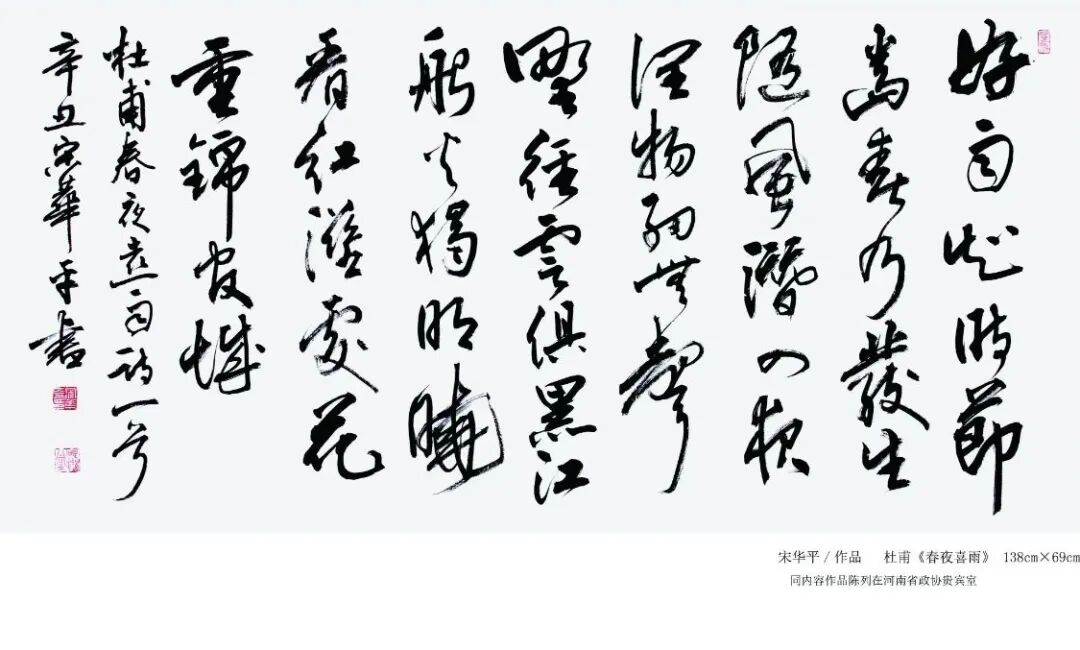 好雨知時節
當春乃發生
隨風潛入夜
潤物細無聲
野徑雲俱黑江
船火獨明曉
看紅濕處花
重錦官城
杜甫春夜喜雨詩一首
辛丑宋華平書
宋华平 / 作品 杜甫《春夜喜雨》 138cm×69cm
同内容作品陈列在河南省政协贵宾室